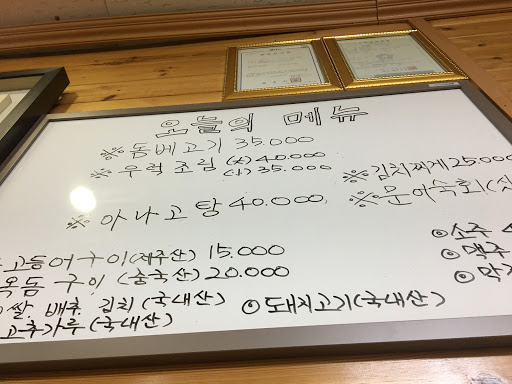 오늘의 메뉴
※ 돔베고기 35.000
※ 우럭 조림 (大) 40.000
(小) 35.000
※ 김치찌개 25.000
※ 아나고탕 40.000
※ 문어숙회
고등어구이 (제주산) 15.000
옥돔 구이 (중국산) 20.000
쌀. 배추. 김치 (국내산)
고추가루 (국내산)
⊙ 돼지고기 (국내산)
⊙ 소주
⊙ 맥주